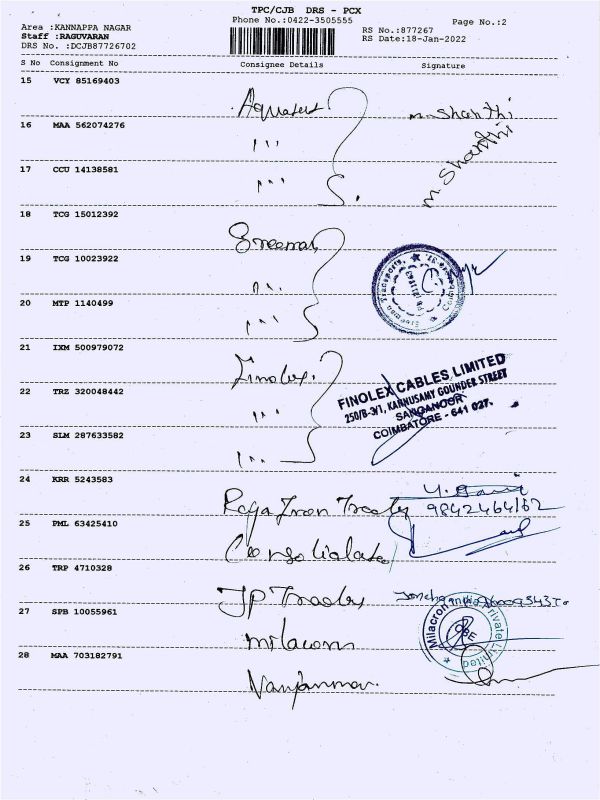 TPC/CJB DRS - PCX
Area :KANNAPPA NAGAR Phone No.:0422-3505555 Page No.:2
Staff :RAGUVARAN RS No.:877267
DRS No. :DCJB87726702 RS Date:18-Jan-2022
S No Consignment No Consignee Details Signature
15 VCY 85169403
M. Shanthi
16 MAA 562074276
M. Shanthi
17 CCU 14138581
18 TCG 15012392
19 TCG 10023922
20 MTP 1140499
21 IXM 500979072
Finolex.
FINOLEX CABLES LIMITED
22 TRZ 320048442
250/B-3/1, KANNUSAMY GOUNDER STREET
SANGANOOR
23 SLM 287633582
COIMBATORE - 641 027.
24 KRR 5243583
Raja Iron
9842464162
25 PML 63425410
26 TRP 4710328
JP
27 SPB 10055961
Milacron Private Limited
CBE
28 MAA 703182791